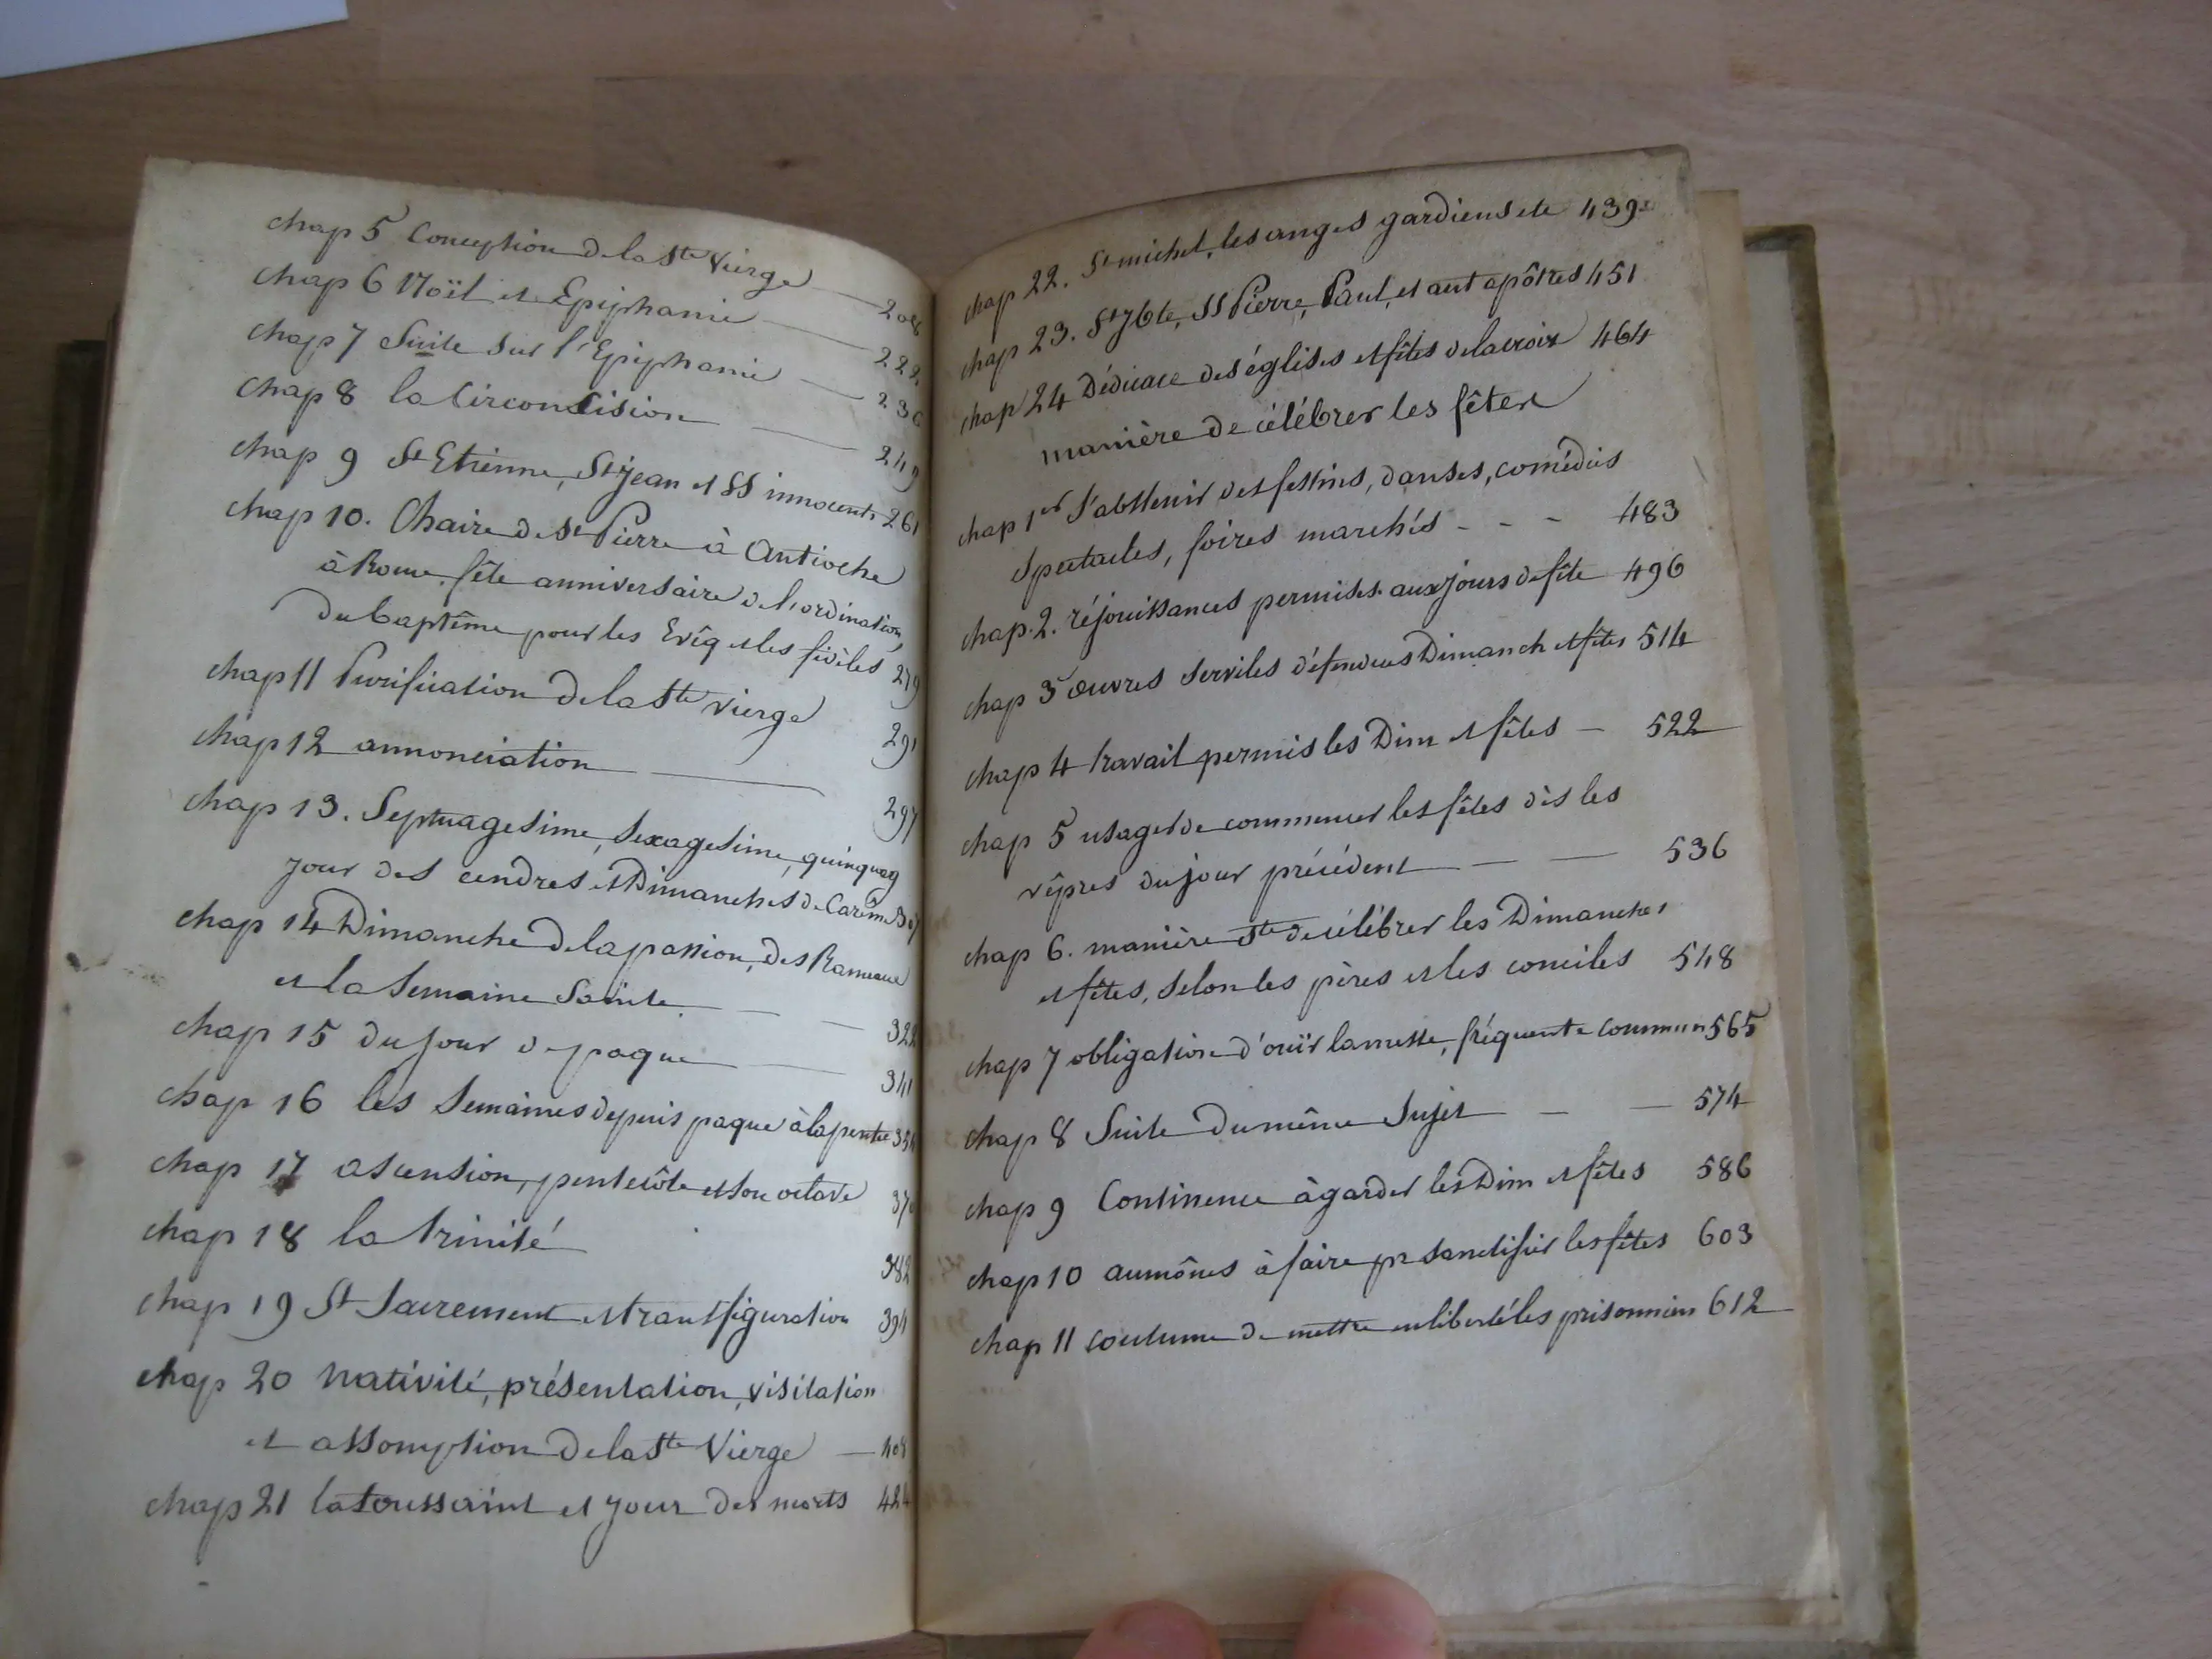 chap 5 Conception de la Ste Vierge — 208
chap 6 Noël et Epiphanie — 222
chap 7 Suite sur l'Epiphanie — 236
chap 8 la Circoncision — 249
chap 9 St Etienne, St jean et SS innocents 261
chap 10. Chaire de St Pierre à Antioche
à Rome, fête anniversaire de l'ordination,
du baptême pour les Evêq et les fidèles 279
chap 11 Purification de la Ste vierge 291
chap 12 annonciation — 297
chap 13. Septuagesime, Sexagesime, quinquag
jour des cendres et Dimanches de Carême
chap 14 Dimanche de la passion, des Rameaux
et la Semaine Sainte - - 322
chap 15 du jour de paque — 341
chap 16 les Semaines depuis paque à la pentec
chap 17 ascension, pentecôte et son octave
chap 18 la trinité 382
chap 19 St Sacrement et transfiguration 394
chap 20 nativité, présentation, visitation
et assomption de la Ste Vierge — 408
chap 21 la toussaint et jour des morts 424
chap 22. St michel, les anges gardiens etc 439
chap 23. St Jbte, SS Pierre, Paul, et aut apôtres 451
chap 24 Dédicace des églises et fêtes de la croix 464
manière de célébrer les fêtes
chap 1er S'abstenir des festins, danses, comédies
Spectacles, foires marchés - - - 483
chap. 2. réjouissances permises aux jours de fête 496
chap 3 œuvres serviles défendues Dimanch et fêtes 514
chap 4 travail permis les Dim et fêtes - 522
chap 5 usage de commencer les fêtes dès les
vêpres du jour précédent — — 536
chap 6. manière Ste de célébrer les Dimanches
et fêtes, selon les pères et les conciles 548
chap 7 obligation d'ouïr la messe, fréquente commun 565
chap 8 Suite du même Sujet — — 574
chap 9 Continence à garder les Dim et fêtes 586
chap 10 aumônes à faire pr sanctifier les fêtes 603
chap 11 coutume de mettre en liberté les prisonniers 612